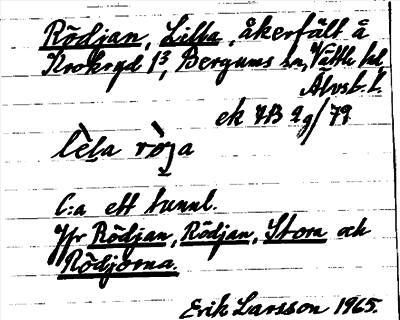 Rödjan, Lilla, åkerfält å
Krokryd 1³, Bergums sn, Vättle hd,
Älvsb. l.
ek 7B 2g/79
lèl̤a rò̤ja
C:a ett tunnl.
Jfr Rödjan, Rödjan, Stora och
Rödjorna.
Erik Larsson 1965.